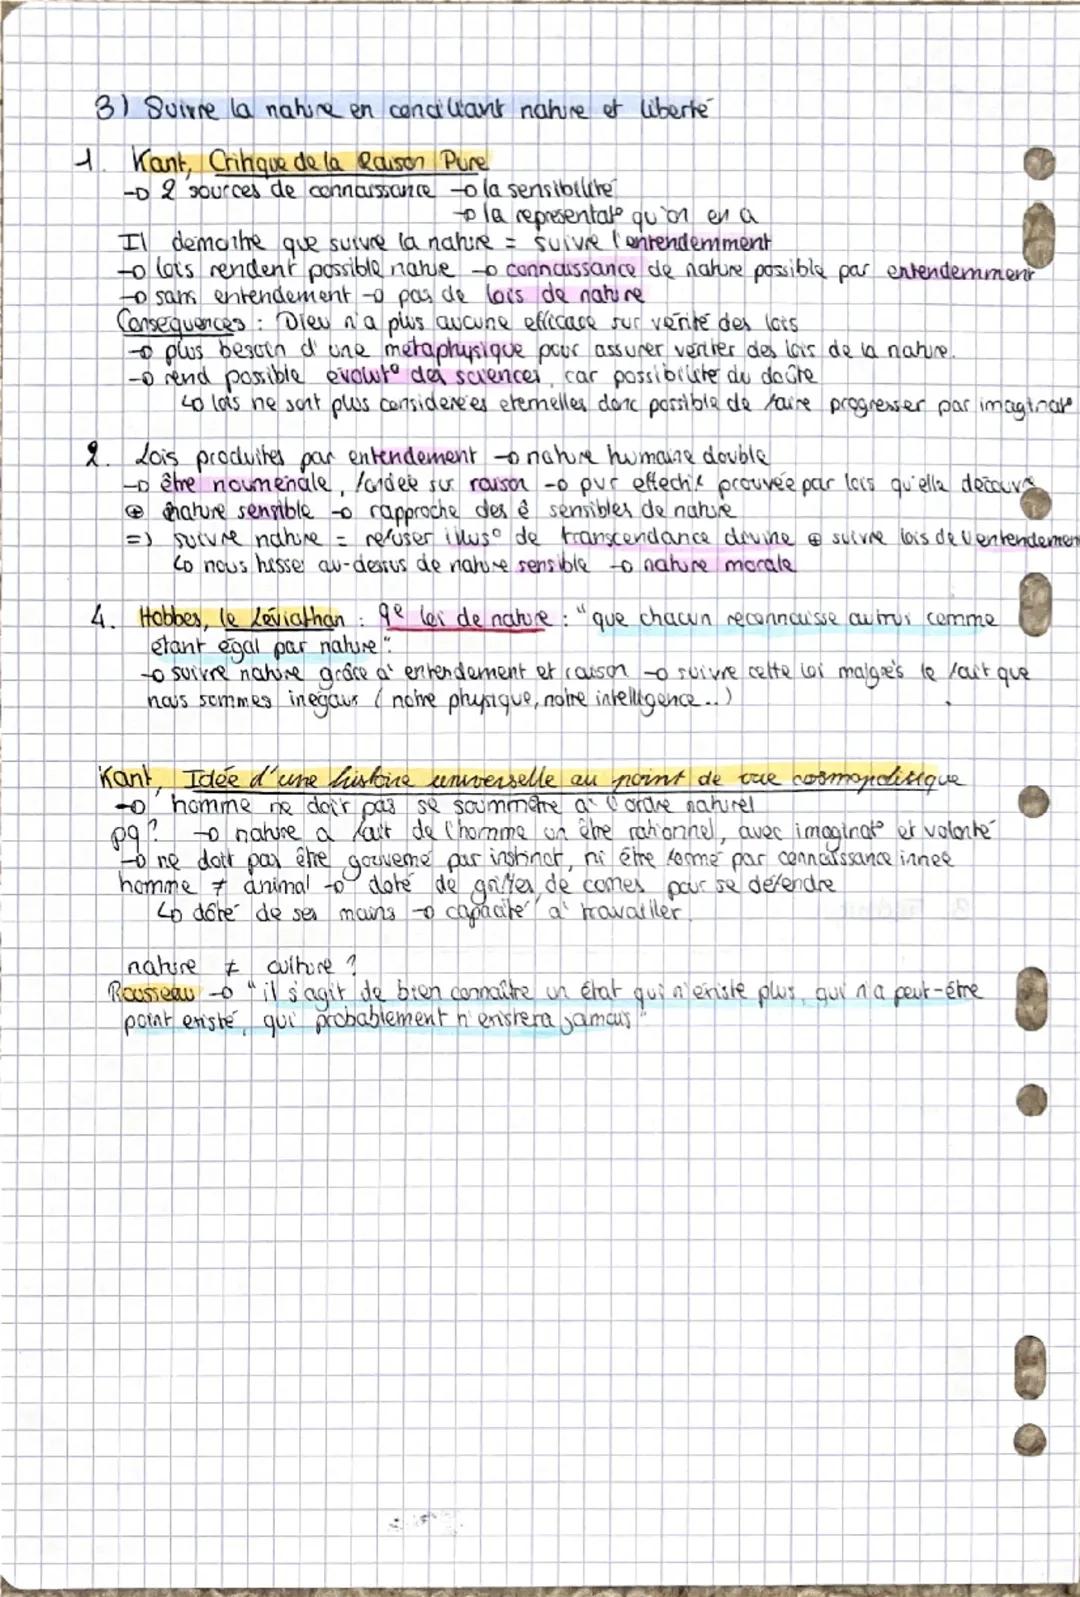 3) Suivre la nature en conciliant nature et liberté
1. Kant, Critique de la Raison Pure
→ 2 sources de connaissance → la sensibilité
→ la representat° qu'on en a
Il demontre que suivre la nature = suivre l'entendemment
→ lois rendent possible nature → connaissance de nature possible par entendemment
→ sans entendement → pas de lois de nature
Consequences : Dieu n'a plus aucune efficace sur vérité des lois
→ plus besoin d'une métaphysique pour assurer veriter des lois de la nature.
→ rend possible évolut° des sciences, car possibilité du doute
↳ lois ne sont plus considerées eternelles donc possible de faire progresser par imaginat°
2. Lois produites par entendement → nature humaine double
→ être noumenale, fondée sur raison → pvr effectif prouvée par lois qu'elle découvre
⊕ nature sensible → rapproche des ê sensibles de nature
=> suivre nature = refuser illus° de transcendance divine ⊕ suivre lois de l'entendement
↳ nous hisser au-dessus de nature sensible → nature morale
4. Hobbes, le Léviathan : 9e loi de nature : "que chacun reconnaisse autrui comme
étant égal par nature".
→ suivre nature grâce à entendement et raison → suivre cette loi malgrés le fait que
nous sommes inégaux (notre physique, notre intelligence..)
Kant, Idée d'une histoire universelle au point de vue cosmopolitique
→ homme ne doit pas se soummettre à l'ordre naturel
pq? → nature a fait de l'homme un être rationnel, avec imaginat° et volonté
→ ne doit pas être gouverné par instinct, ni être formé par connaissance innée
homme ≠ animal → doté de griffes, de cornes pour se défendre
↳ doté de ses mains → capacité à travailler.
nature ≠ culture ?
Rousseau → "il s'agit de bien connaître un état qui n'existe plus, qui n'a peut-être
point existé, qui probablement n'existera jamais"